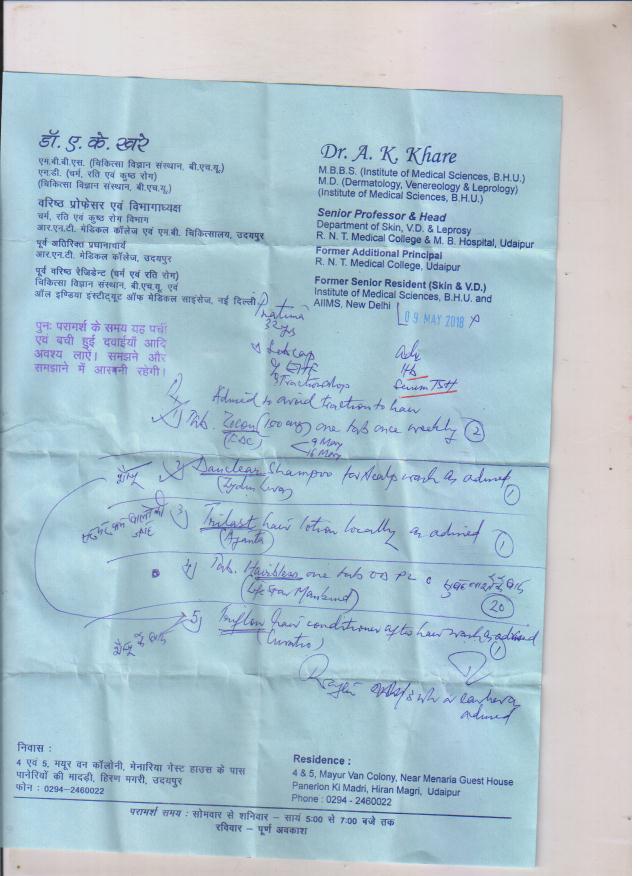 डॉ. ए. के. खरे
एम.बी.बी.एस. (चिकित्सा विज्ञान संस्थान, बी.एच.यू.)
एम.डी. (चर्म, रति एवं कुष्ठ रोग)
(चिकित्सा विज्ञान संस्थान, बी.एच.यू.)
वरिष्ठ प्रोफेसर एवं विभागाध्यक्ष
चर्म, रति एवं कुष्ठ रोग विभाग
आर.एन.टी. मेडिकल कॉलेज एवं एम.बी. चिकित्सालय, उदयपुर
पूर्व अतिरिक्त प्रधानाचार्य
आर.एन.टी. मेडिकल कॉलेज, उदयपुर
पूर्व वरिष्ठ रेजिडेन्ट (चर्म एवं रति रोग)
चिकित्सा विज्ञान संस्थान, बी.एच.यू. एवं
ऑल इण्डिया इंस्टीट्यूट ऑफ मेडिकल साइंसेज, नई दिल्ली
Dr. A. K. Khare
M.B.B.S. (Institute of Medical Sciences, B.H.U.)
M.D. (Dermatology, Venereology & Leprology)
(Institute of Medical Sciences, B.H.U.)
Senior Professor & Head
Department of Skin, V.D. & Leprosy
R. N. T. Medical College & M. B. Hospital, Udaipur
Former Additional Principal
R. N. T. Medical College, Udaipur
Former Senior Resident (Skin & V.D.)
Institute of Medical Sciences, B.H.U. and
AIIMS, New Delhi
09 MAY 2018
पुनः परामर्श के समय यह पर्ची
एवं बची हुई दवाईयाँ आदि
अवश्य लाऐं। समझने और
समझाने में आसानी रहेगी।
Pratima
32 yrs
Adv
Hb
Serum TSH
Advised to avoid traction to hair
1) Tab. (150mg) one tab once weekly (2)
9 May
16 May
2) Danclear Shampoo for scalp wash as advised (1)
3) Trilast hair lotion locally as advised (1)
(Ajanta)
4) Tab. Hairbless one tab OD
(Mankind)
(20)
5) hair conditioner after hair wash as advised (1)
(Curatio)
advised
निवास :
4 एवं 5, मयूर वन कॉलोनी, मेनारिया गेस्ट हाउस के पास
पानेरियों की मादड़ी, हिरण मगरी, उदयपुर
फोन : 0294-2460022
Residence :
4 & 5, Mayur Van Colony, Near Menaria Guest House
Panerion Ki Madri, Hiran Magri, Udaipur
Phone : 0294 - 2460022
परामर्श समय : सोमवार से शनिवार – सायं 5:00 से 7:00 बजे तक
रविवार – पूर्ण अवकाश